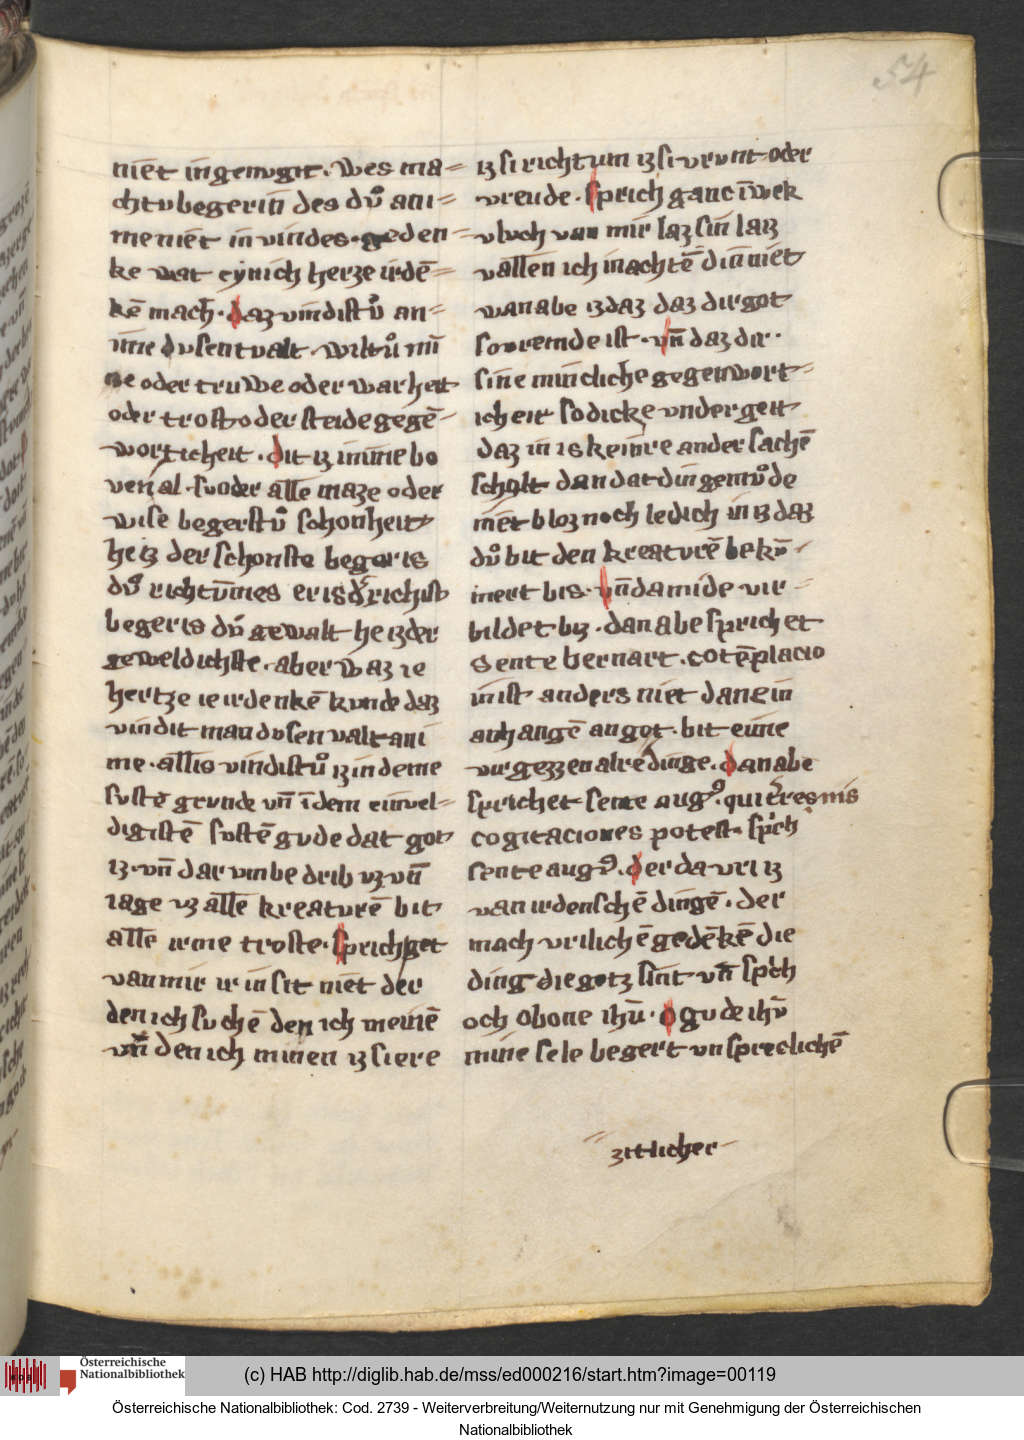 54
niet in genugit. wes ma=
cht v begerin des dvͦ ani=
me niet in vindes. geden=
ke wat eynich herze irdē=
kē mach. daz vindistvͦ an=
ime dusentvalt. wiltuͦ mī
ne oder truwe oder warheit
oder trost oder steide gegē=
worticheit. dit iz imme bo
ven al. sunder alle maze oder
wise begerstvͦ schonheit
he iz der schonste begeris
dvͦ richtv̄mes er is d' richist
begeris dvͦ gewalt he iz der
geweldichste. aber waz ie
hertze ie irdenkē kunde daz
vindit man dusenvalt an i
me. allis vindistuͦ iz in deme
sustē grunde vn̄ īdem einvel=
digistē sustē gude dat got
iz. vn̄ dar vmbe drib vz vn̄
iage vz alle kreaturē bit
alle irme troste. sprich get
van mir ir in sit niet der
den ich suchē den ich meinē
vn̄ den ich minen iz si ere
iz si richtum iz si vrunt oder
vreude. sprich ganc īwek
vluch van mir laz sin laz
vallen ich inachtē din niet
wan abe iz daz daz dir got
so vremde ist. vn̄ daz dir.
sine minclich̄e gegenwort=
icheit so dicke vndergeit
daz in is keinre ander sachē
scholt dan dat din gemvͦde
niet bloz noch ledich in iz daz
dvͦ bit den kreaturē bekv̄=
mert bis. vn̄ da mide vir=
bildet biz. dan abe sprichet
sente bernart. cotēplacio
in ist anders niet dan ein
anhangē an got. bit eime
virgezzen alre dinge. dan abe
sprichet sente augꝰ. qui t'res nis
cogitaciones potest. sp'ch
sente augꝰ. der da vri iz
van irdenschē dingē. der
mach vrilichē gedēkē die
ding die gotz sint vn̄ sp'ch
och o bone ihū. o gude ihū
mine sele begert vnsprechlichē
zitlicher
Österreichische
Nationalbibliothek
(c) HAB http://diglib.hab.de/mss/ed000216/start.htm?image=00119
Österreichische Nationalbibliothek: Cod. 2739 - Weiterverbreitung/Weiternutzung nur mit Genehmigung der Österreichischen
Nationalbibliothek